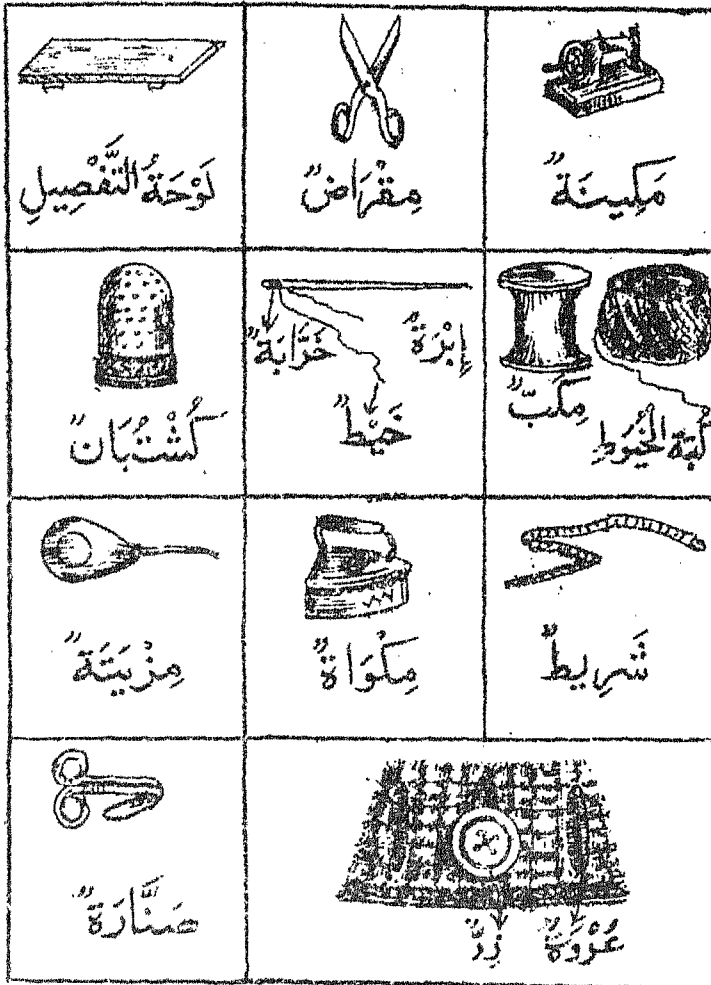 مَكِينَةٌ
مِقْرَاضٌ
لَوْحَةُ التَّفْصِيلِ
كُبَّةُ الْخُيُوطِ
مِكَبٌّ
إِبْرَةٌ
خَرَّابَةٌ
خَيْطٌ
كُشْتُبَانٌ
شَرِيطٌ
مِكْوَاةٌ
مِزْيَتَةٌ
عُرْوَةٌ
زِرٌّ
صَنَّارَةٌ